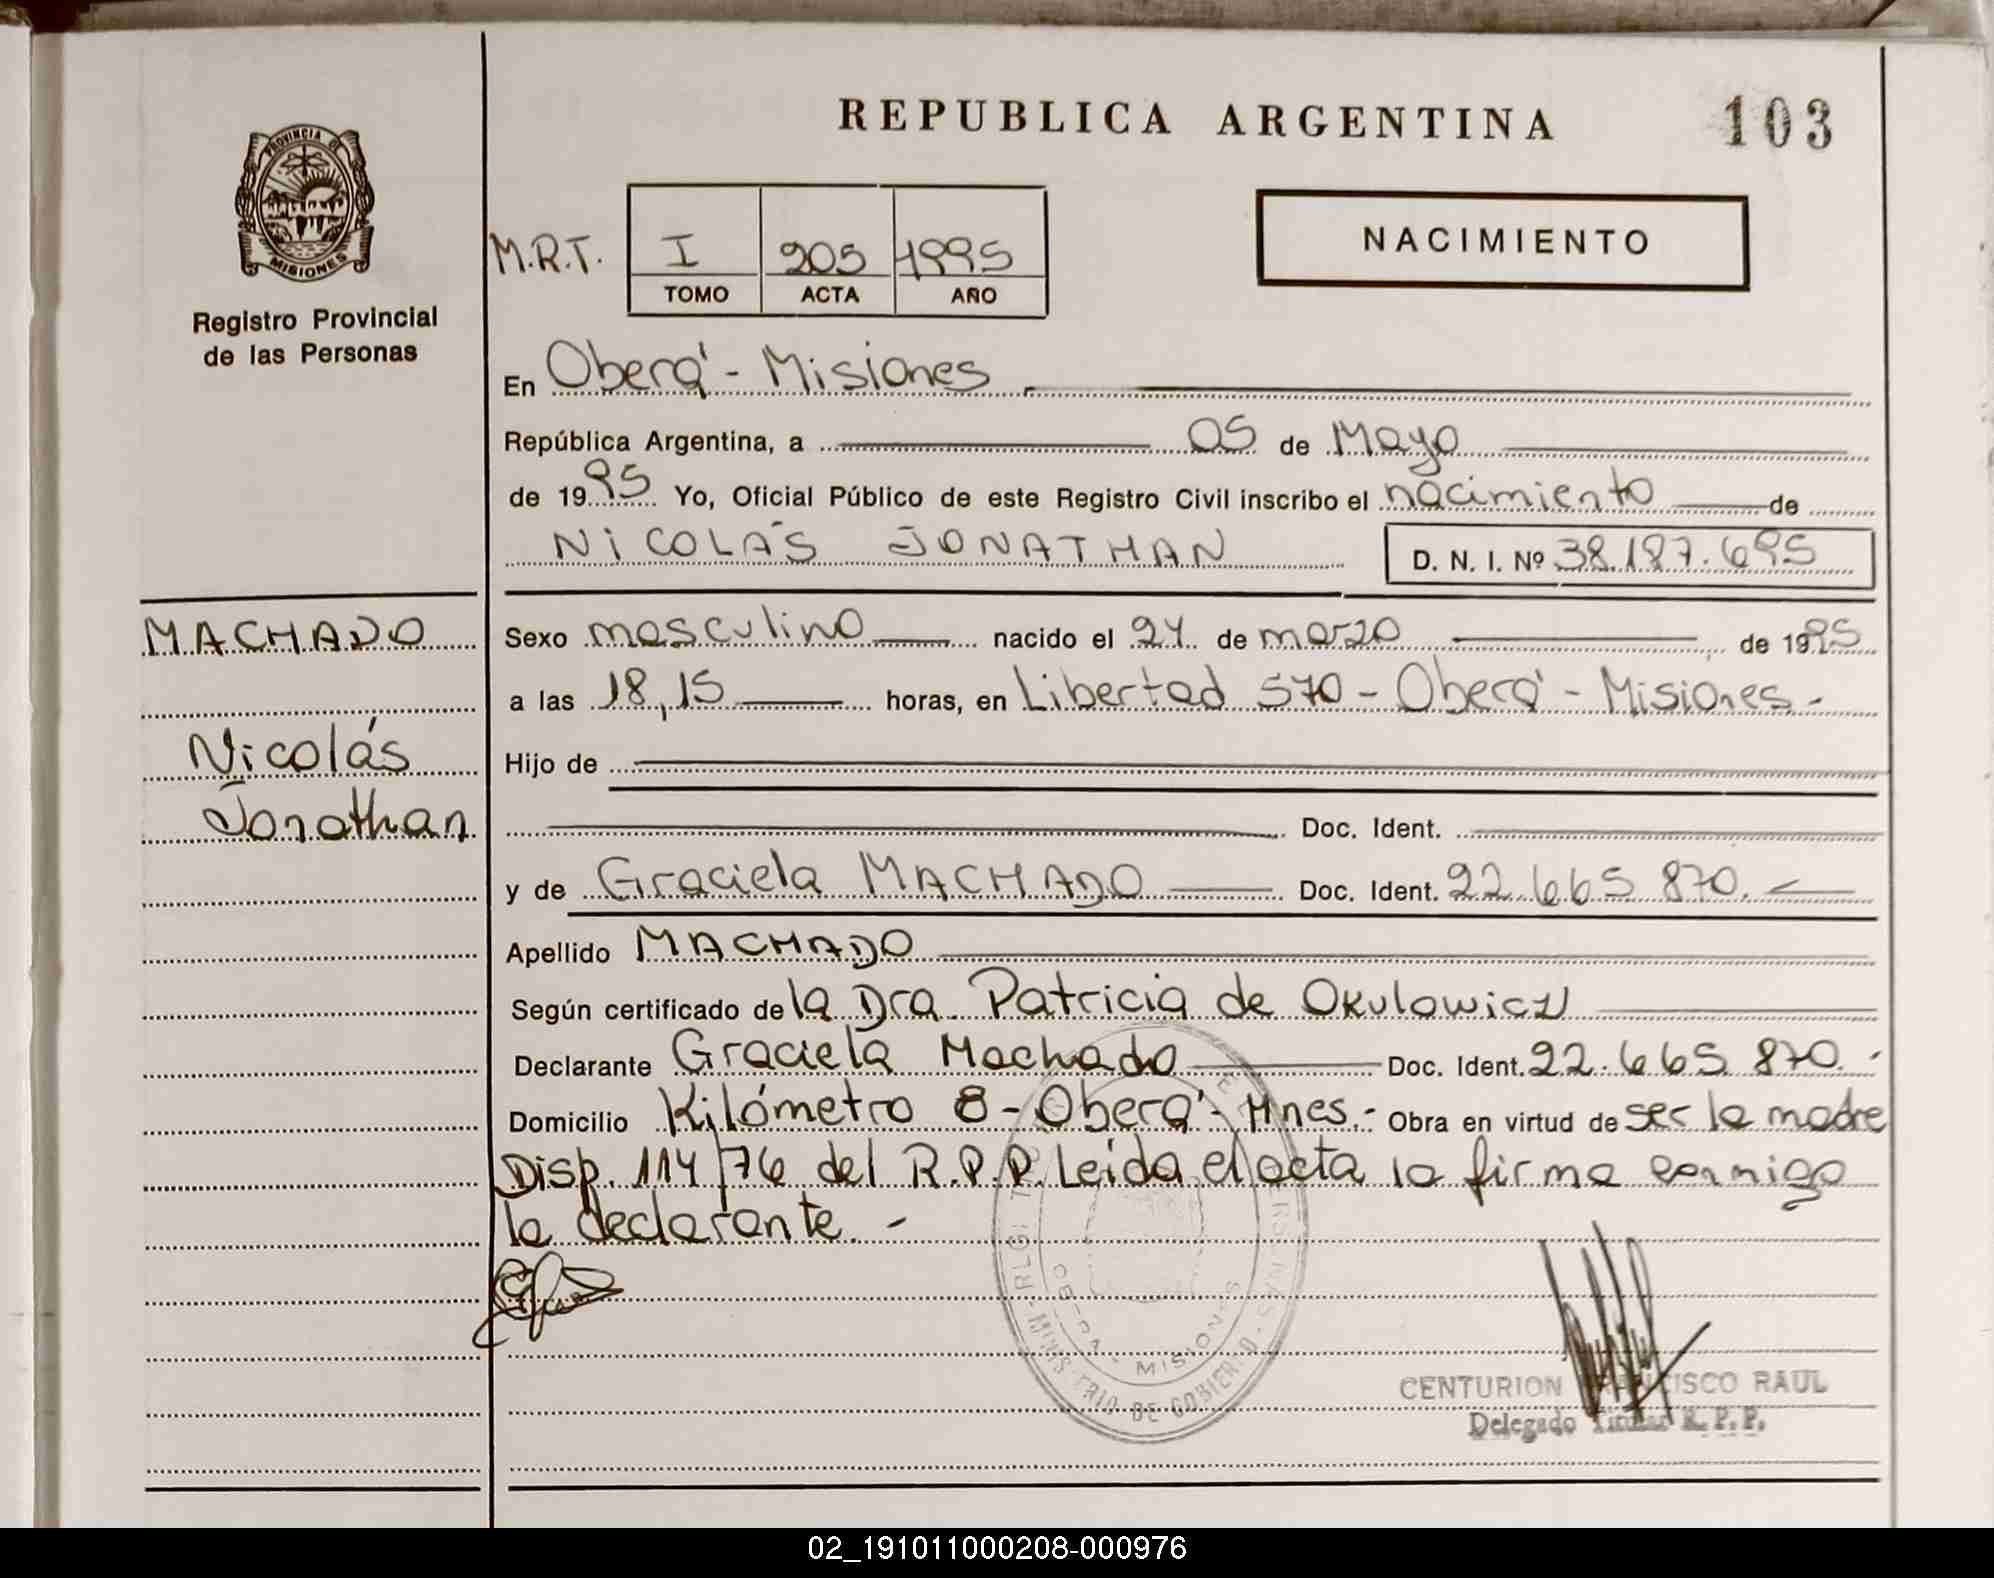 REPUBLICA ARGENTINA
103
PROVINCIA DE
MISIONES
Registro Provincial
de las Personas
M.R.T.
I 205 1995
TOMO ACTA AÑO
NACIMIENTO
En Oberá - Misiones
República Argentina, a 05 de Mayo
de 1995 Yo, Oficial Público de este Registro Civil inscribo el nacimiento de
NICOLÁS JONATHAN D. N. I. Nº 38.187.695
MACHADO
Nicolás
Jonathan
Sexo masculino nacido el 24 de marzo de 1995
a las 18,15 horas, en Libertad 570 - Oberá - Misiones.-
Hijo de
Doc. Ident.
y de Graciela MACHADO Doc. Ident. 22.665.870.
Apellido MACHADO
Según certificado de la Dra. Patricia de Okulowicz
Declarante Graciela Machado Doc. Ident. 22.665.870.-
Domicilio Kilómetro 8 - Oberá - Mnes.- Obra en virtud de ser la madre
Disp. 114/76 del R.P.P. Leida el acta la firma conmigo
la declarante.-
OBERA - MISIONES
MINISTERIO DE GOBIERNO
CENTURION FRANCISCO RAUL
Delegado Titular R. P. P.
02_191011000208-000976